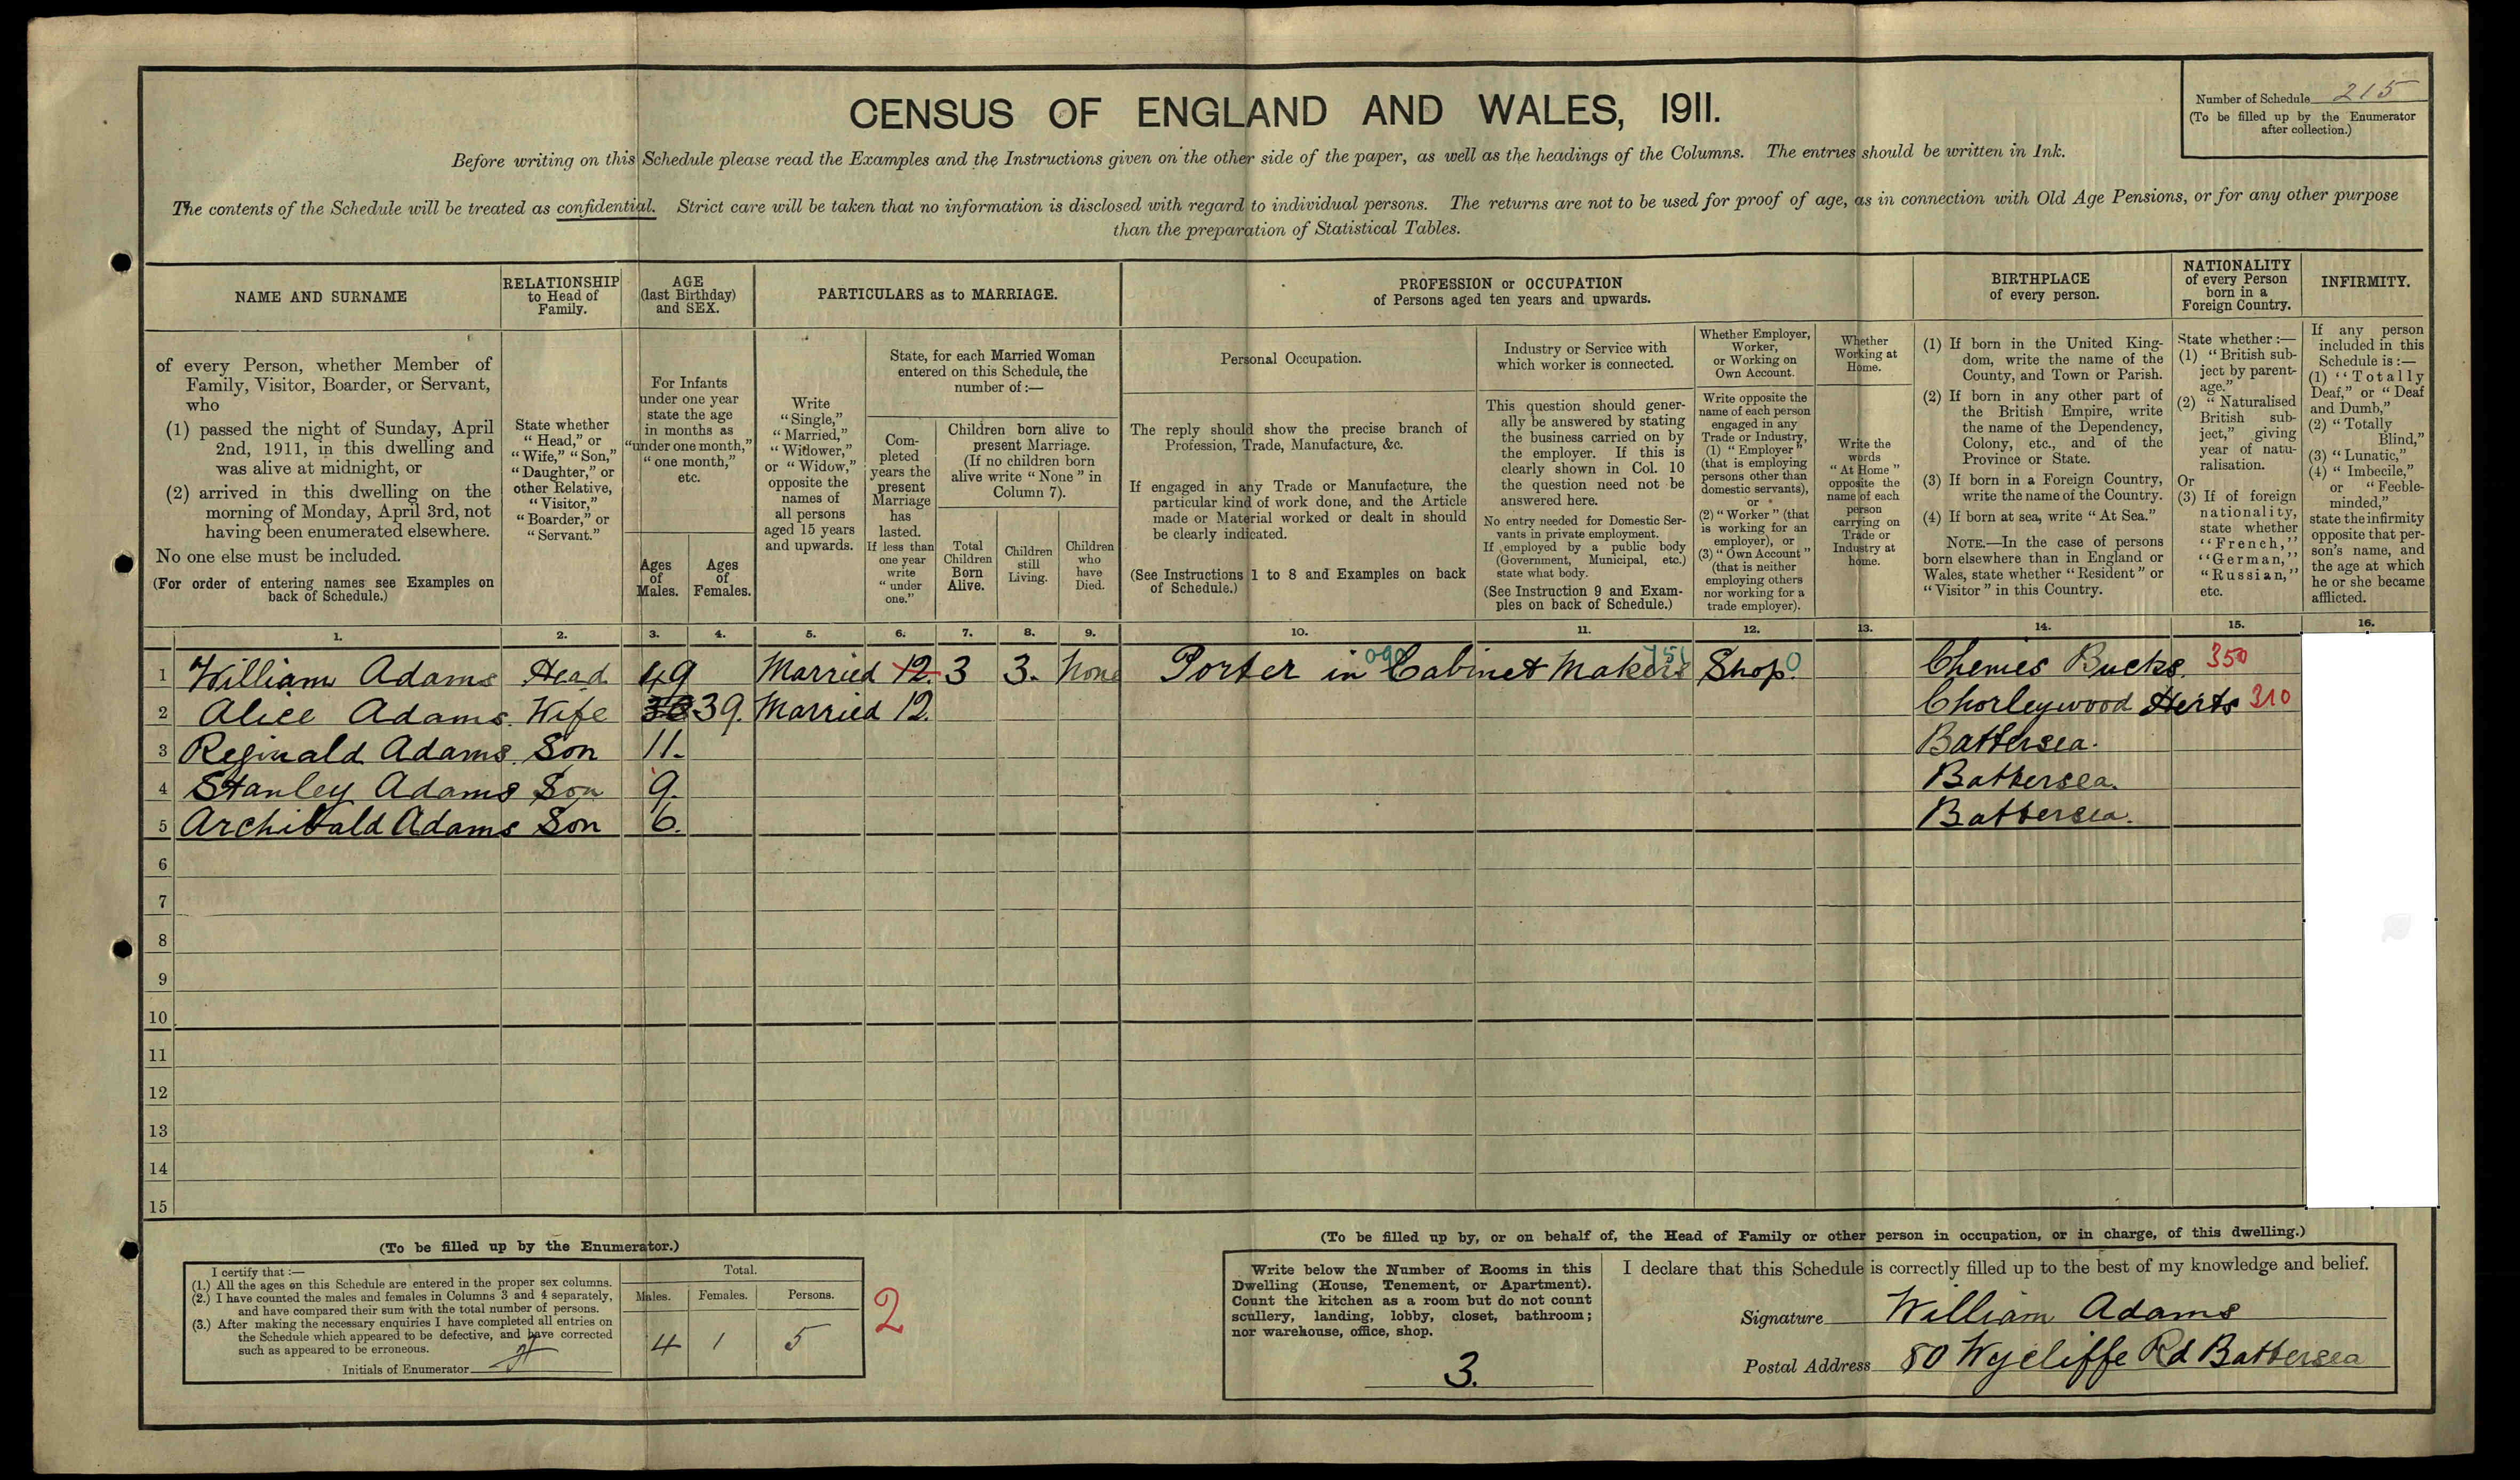 Number of Schedule 215
(To be filled up by the Enumerator
after collection.)
CENSUS OF ENGLAND AND WALES, 1911.
Before writing on this Schedule please read the Examples and the Instructions given on the other side of the paper, as well as the headings of the Columns. The entries should be written in Ink.
The contents of the Schedule will be treated as confidential. Strict care will be taken that no information is disclosed with regard to individual persons. The returns are not to be used for proof of age, as in connection with Old Age Pensions, or for any other purpose
than the preparation of Statistical Tables.
NAME AND SURNAME
of every Person, whether Member of
Family, Visitor, Boarder, or Servant,
who
(1) passed the night of Sunday, April
2nd, 1911, in this dwelling and
was alive at midnight, or
(2) arrived in this dwelling on the
morning of Monday, April 3rd, not
having been enumerated elsewhere.
No one else must be included.
(For order of entering names see Examples on
back of Schedule.)
RELATIONSHIP
to Head of
Family.
State whether
"Head," or
"Wife," "Son,"
"Daughter," or
other Relative,
"Visitor,"
"Boarder," or
"Servant."
AGE
(last Birthday)
and SEX.
For Infants
under one year
state the age
in months as
"under one month,"
"one month,"
etc.
Ages
of
Males.
Ages
of
Females.
PARTICULARS as to MARRIAGE.
Write
"Single,"
"Married,"
"Widower,"
or "Widow,"
opposite the
names of
all persons
aged 15 years
and upwards.
State, for each Married Woman
entered on this Schedule, the
number of:—
Com-
pleted
years the
present
Marriage
has
lasted.
If less than
one year
write
"under
one."
Children born alive to
present Marriage.
(If no children born
alive write "None" in
Column 7).
Total
Children
Born
Alive.
Children
still
Living.
Children
who
have
Died.
PROFESSION or OCCUPATION
of Persons aged ten years and upwards.
Personal Occupation.
The reply should show the precise branch of
Profession, Trade, Manufacture, &c.
If engaged in any Trade or Manufacture, the
particular kind of work done, and the Article
made or Material worked or dealt in should
be clearly indicated.
(See Instructions 1 to 8 and Examples on back
of Schedule.)
Industry or Service with
which worker is connected.
This question should gener-
ally be answered by stating
the business carried on by
the employer. If this is
clearly shown in Col. 10
the question need not be
answered here.
No entry needed for Domestic Ser-
vants in private employment.
If employed by a public body
(Government, Municipal, etc.)
state what body.
(See Instruction 9 and Exam-
ples on back of Schedule.)
Whether Employer,
Worker,
or Working on
Own Account.
Write opposite the
name of each person
engaged in any
Trade or Industry,
(1) "Employer"
(that is employing
persons other than
domestic servants),
or
(2) "Worker" (that
is working for an
employer), or
(3) "Own Account"
(that is neither
employing others
nor working for a
trade employer).
Whether
Working at
Home.
Write the
words
"At Home"
opposite the
name of each
person
carrying on
Trade or
Industry at
home.
BIRTHPLACE
of every person.
(1) If born in the United King-
dom, write the name of the
County, and Town or Parish.
(2) If born in any other part of
the British Empire, write
the name of the Dependency,
Colony, etc., and of the
Province or State.
(3) If born in a Foreign Country,
write the name of the Country.
(4) If born at sea, write "At Sea."
NOTE.—In the case of persons
born elsewhere than in England or
Wales, state whether "Resident" or
"Visitor" in this Country.
NATIONALITY
of every Person
born in a
Foreign Country.
State whether:—
(1) "British sub-
ject by parent-
age."
(2) "Naturalised
British sub-
ject," giving
year of natu-
ralisation.
Or
(3) If of foreign
nationality,
state whether
"French,"
"German,"
"Russian,"
etc.
INFIRMITY.
If any person
included in this
Schedule is:—
(1) "Totally
Deaf," or "Deaf
and Dumb,"
(2) "Totally
Blind,"
(3) "Lunatic,"
(4) "Imbecile,"
or "Feeble-
minded,"
state the infirmity
opposite that per-
son's name, and
the age at which
he or she became
afflicted.
1. 2. 3. 4. 5. 6. 7. 8. 9. 10. 11. 12. 13. 14. 15. 16.
1 William Adams Head 49 Married 12 3 3. None Porter in 090 Cabinet Makers 751 Shop. 0 Chenies Bucks. 350
2 Alice Adams. Wife 39. Married 12. Chorleywood Herts 310
3 Reginald Adams. Son 11. Battersea.
4 Stanley Adams Son 9. Battersea.
5 Archibald Adams Son 6. Battersea.
6
7
8
9
10
11
12
13
14
15
(To be filled up by the Enumerator.)
I certify that:—
(1.) All the ages on this Schedule are entered in the proper sex columns.
(2.) I have counted the males and females in Columns 3 and 4 separately,
and have compared their sum with the total number of persons.
(3.) After making the necessary enquiries I have completed all entries on
the Schedule which appeared to be defective, and have corrected
such as appeared to be erroneous.
Initials of Enumerator
Total.
Males. Females. Persons.
4 1 5
2
(To be filled up by, or on behalf of, the Head of Family or other person in occupation, or in charge, of this dwelling.)
Write below the Number of Rooms in this
Dwelling (House, Tenement, or Apartment).
Count the kitchen as a room but do not count
scullery, landing, lobby, closet, bathroom;
nor warehouse, office, shop.
3.
I declare that this Schedule is correctly filled up to the best of my knowledge and belief.
Signature William Adams
Postal Address 80 Wycliffe Rd Battersea